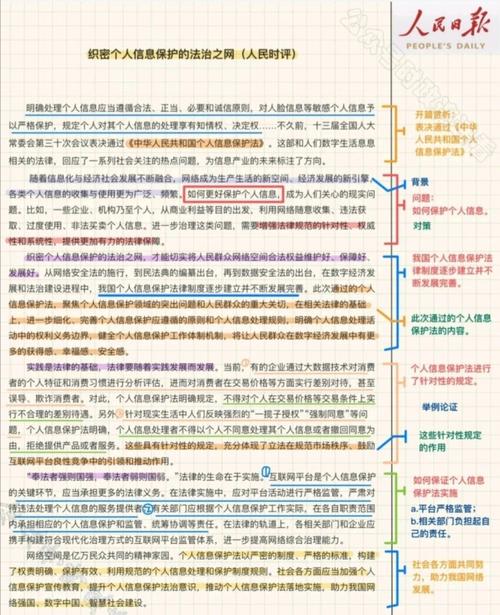 人民日报
PEOPLE'S DAILY
织密个人信息保护的法治之网（人民时评）
明确处理个人信息应当遵循合法、正当、必要和诚信原则，对人脸信息等敏感个人信息予
以严格保护，规定个人对其个人信息的处理享有知情权、决定权……不久前，十三届全国人大
常委会第三十次会议表决通过《中华人民共和国个人信息保护法》。这部和人们数字生活息息
相关的法律，回应了一系列社会关注的热点问题，为信息产业的未来标注了方向。
随着信息化与经济社会发展不断融合，网络成为生产生活的新空间、经济发展的新引擎，
各类个人信息的收集与使用更为广泛、频繁。如何更好保护个人信息，成为人们关心的现实问
题。比如，一些企业、机构乃至个人，从商业利益等目的出发，利用网络随意收集、违法获
取、过度使用、非法买卖个人信息。进一步治理这类问题，需要增强法律规范的针对性、权威
性和系统性，提供更加有力的法律保障。
织密个人信息保护的法治之网，才能切实将人民群众网络空间合法权益维护好、保障好、
发展好。从网络安全法的施行，到民法典的编纂出台，再到数据安全法的出台，在数字经济发展
和法治建设进程中，我国个人信息保护法律制度逐步建立并不断发展完善。此次通过的个
人信息保护法，聚焦个人信息保护领域的突出问题和人民群众的重大关切，在相关法律的基础
上，进一步细化、完善个人信息保护应遵循的原则和个人信息处理规则，明确个人信息处理活
动中的权利义务边界，健全个人信息保护工作体制机制，将让人民群众在数字经济发展中有更
多的获得感、幸福感、安全感。
实践是法律的基础，法律要随着实践发展而发展。当前，有的企业通过大数据技术对消费
者的个人特征和消费习惯进行分析评估，进而对消费者在交易价格等方面实行差别对待，甚至
误导、欺诈消费者。对此，个人信息保护法明确规定，不得对个人在交易价格等交易条件上实
行不合理的差别待遇。另外针对现实生活中人们反映强烈的“一揽子授权”“强制同意”等
问题，个人信息保护法明确，个人信息处理者不得以个人不同意处理其个人信息或者撤回同意为
由，拒绝提供产品或者服务。这些具有针对性的规定，充分体现了立法在规范市场秩序、鼓励
互联网平台良性竞争中的引领和推动作用。
“奉法者强则国强，奉法者弱则国弱。”法律的生命在于实施。①互联网平台是个人信息保护
的关键环节，应当承担更多的法律义务。在法律实施中，应对平台活动进行严格监管，严肃对
待违法处理个人信息的服务提供者②有关部门应根据个人信息保护工作实际，在各自职责范围
内承担相应的个人信息保护和监管、统筹协调等责任。在法律的轨道上，各相关部门和企业应
携手构建符合现代化治理方式的互联网平台监管体系，进一步提高网络综合治理能力。
网络空间是亿万民众共同的精神家园。个人信息保护法以严密的制度、严格的标准，构建了
权责明确、保护有效、利用规范的个人信息处理和保护制度规则。社会各方面应当加强个
人信息保护宣传教育，提升个人信息保护法治意识，推动个人信息保护法落地实施，助力我国网
络强国、数字中国、智慧社会建设。
开篇赏析：
表决通过《中华
人民共和国个人
信息保护法》
背景
问题：
如何保护个人信息。
对策
我国个人信息保护法
律制度逐步建立并不
断发展完善。
此次通过的个人信息
保护法的内容。
个人信息保护法进行
了针对性的规定。
举例论证
这些针对性规定
的作用
如何保证个人信息保
护法实施
a.平台严格监管；
b.相关部门负担起自
己的责任。
社会各方面共同努
力，助力我国网络
强国。